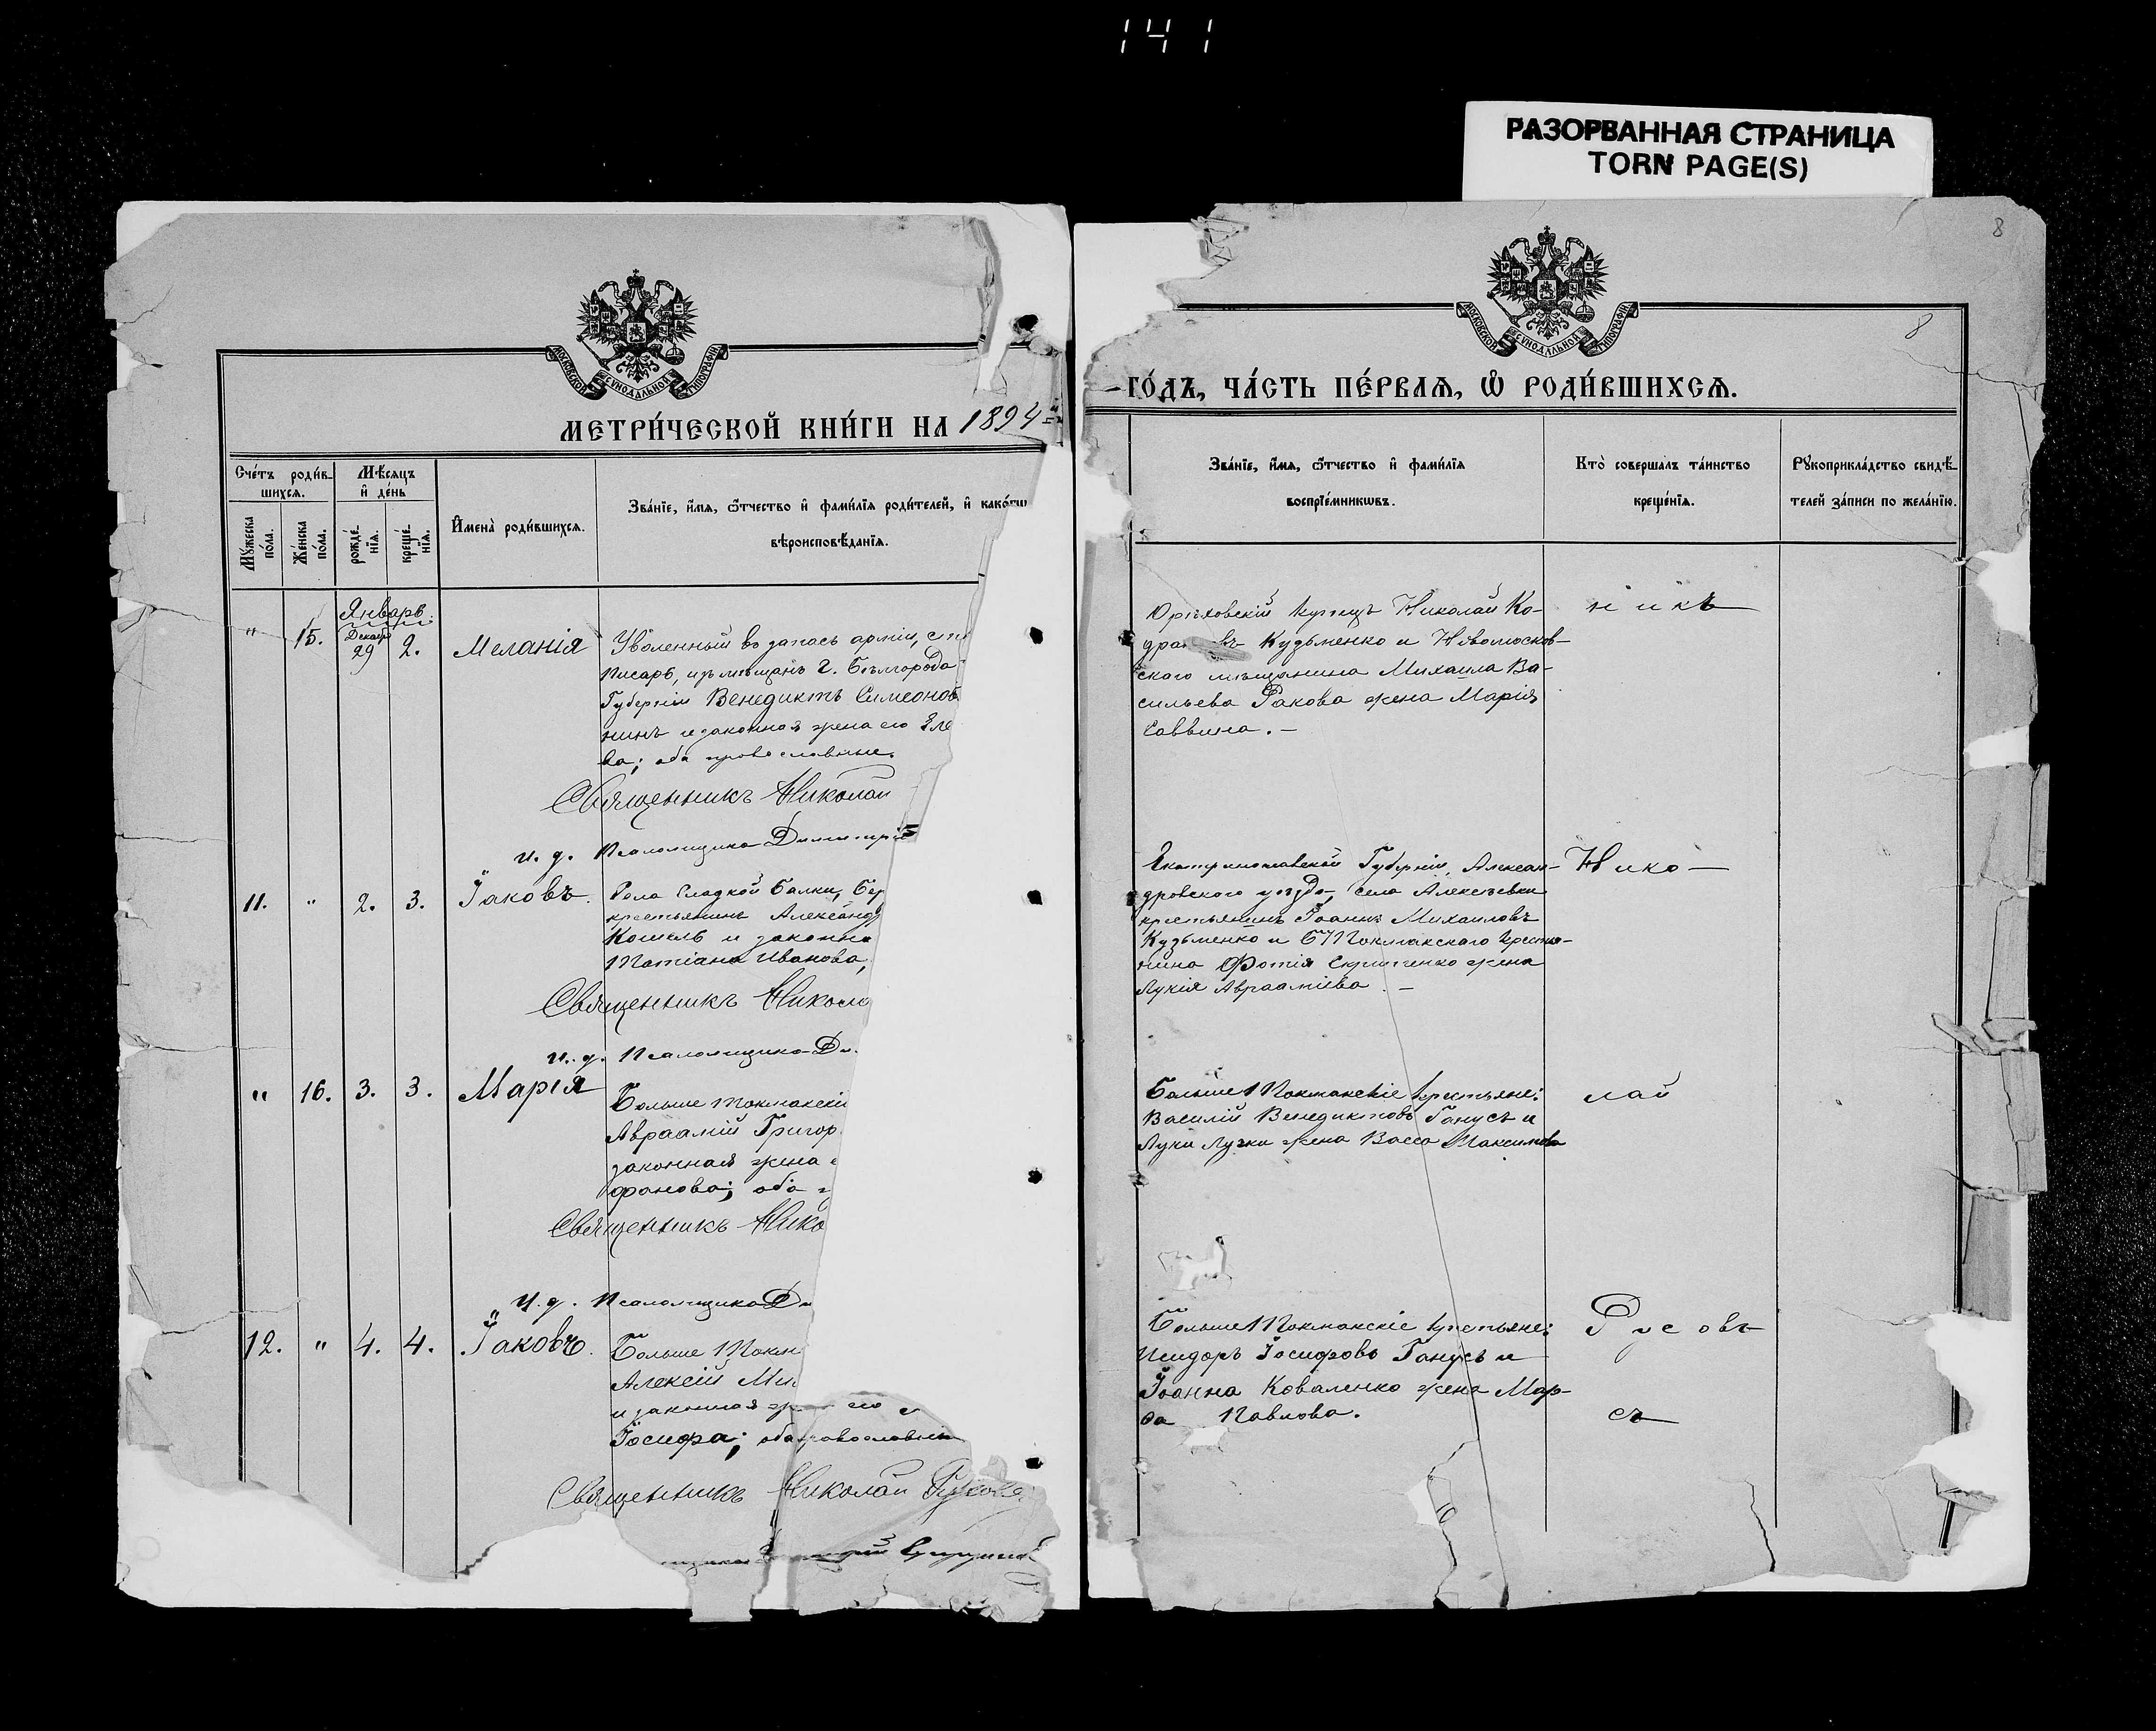 141
РАЗОРВАННАЯ СТРАНИЦА
TORN PAGE(S)
МОСКОВСКОЙ СѴНОДАЛЬНОЙ ТИПОГРАФІИ
МЕТРИ́ЧЕСКОЙ КНИ́ГИ НА 1894
Сче́тъ роди́в-
шихсѧ.
Мѣ́сѧцъ
и҆ де́нь
Мꙋ́жеска
по́ла.
Же́нска
по́ла.
рожде́-
нїѧ.
креще́-
нїѧ.
И҆мена̀ роди́вшихсѧ.
Зва́нїе, и҆́мѧ, ѻ҆́тчество и҆ фами́лїѧ роди́телей, и҆ како́гѡ
вѣроисповѣ́данїѧ.
Январь.
" 15. Декабр 29 2. Меланія
Уволенный въ запасъ арміи, ст
писарь, изъ мѣщанъ г. Бѣлгорода
Губерніи Венедиктъ Симеонов
нинъ и законная жена его Еле
ва; оба православные.
Священникъ Николай
и. д. Псаломщика Димитрій
11. " 2. 3. Іаковъ.
Села Сладкой Балки, Бер
крестьянинъ Александр
Кошель и законна
Татіана Иванова,
Священникъ Никол
и. д. Псаломщика Ди
" 16. 3. 3. Марія
Больше Токмакскі
Авраамій Григор
законная жена е
фанова; оба
Священникъ Нико
И. д. Псаломщика Ди
12. " 4. 4. Іаковъ.
Больше Токм
Алексій Ми
и законная его
Іосифа; оба православны
Священникъ Николай Русов
8
8
МОСКОВСКОЙ СѴНОДАЛЬНОЙ ТИПОГРАФІИ
ГО́ДЪ, ЧА́СТЬ ПЕ́РВАѦ, Ѡ҆ РОДИ́ВШИХСѦ.
Зва́нїе, и҆́мѧ, ѻ҆́тчество и҆ фами́лїѧ
воспрїе́мникѡвъ.
Кто̀ соверша́лъ та́инство
креще́нїѧ.
Рꙋкоприкла́дство свидѣ́-
телей за́писи по жела́нїю.
Орѣховскій купецъ Николай Ко-
дра въ Кузьменко и Новомосков-
ского мѣщанина Михаила Ва-
сильева Ракова жена Марія
Саввина. –
н и къ
Екатеринославской Губерніи, Алексан-
дровского уѣзда, села Алексѣевки
крестьянинъ Іоаннъ Михаиловъ
Кузьменко и Б Токмакскаго крестья-
нина Фотія жена
Лукія Авраамíева. –
Нико –
Больше Токмакскіе крестьяне:
Василій Венедиктовъ Ганусъ и
Луки Лузки жена Васса Максимова
лай
Больше Токмакскіе крестьяне:
Исидоръ Іосифовъ Ганусъ и
Іоанна Коваленко жена Мар-
ѳа Павлова.
Русовъ
съ